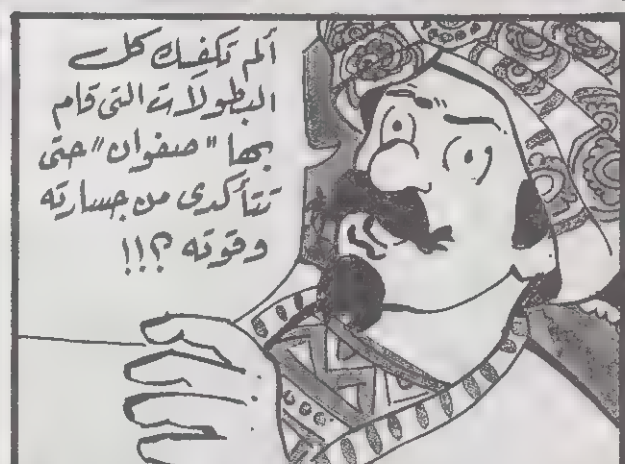 ألم تكفك كل
البطولات التى قام
بها "صفوان" حتى
تتأكدى من جسارته
وقوته ؟!!!